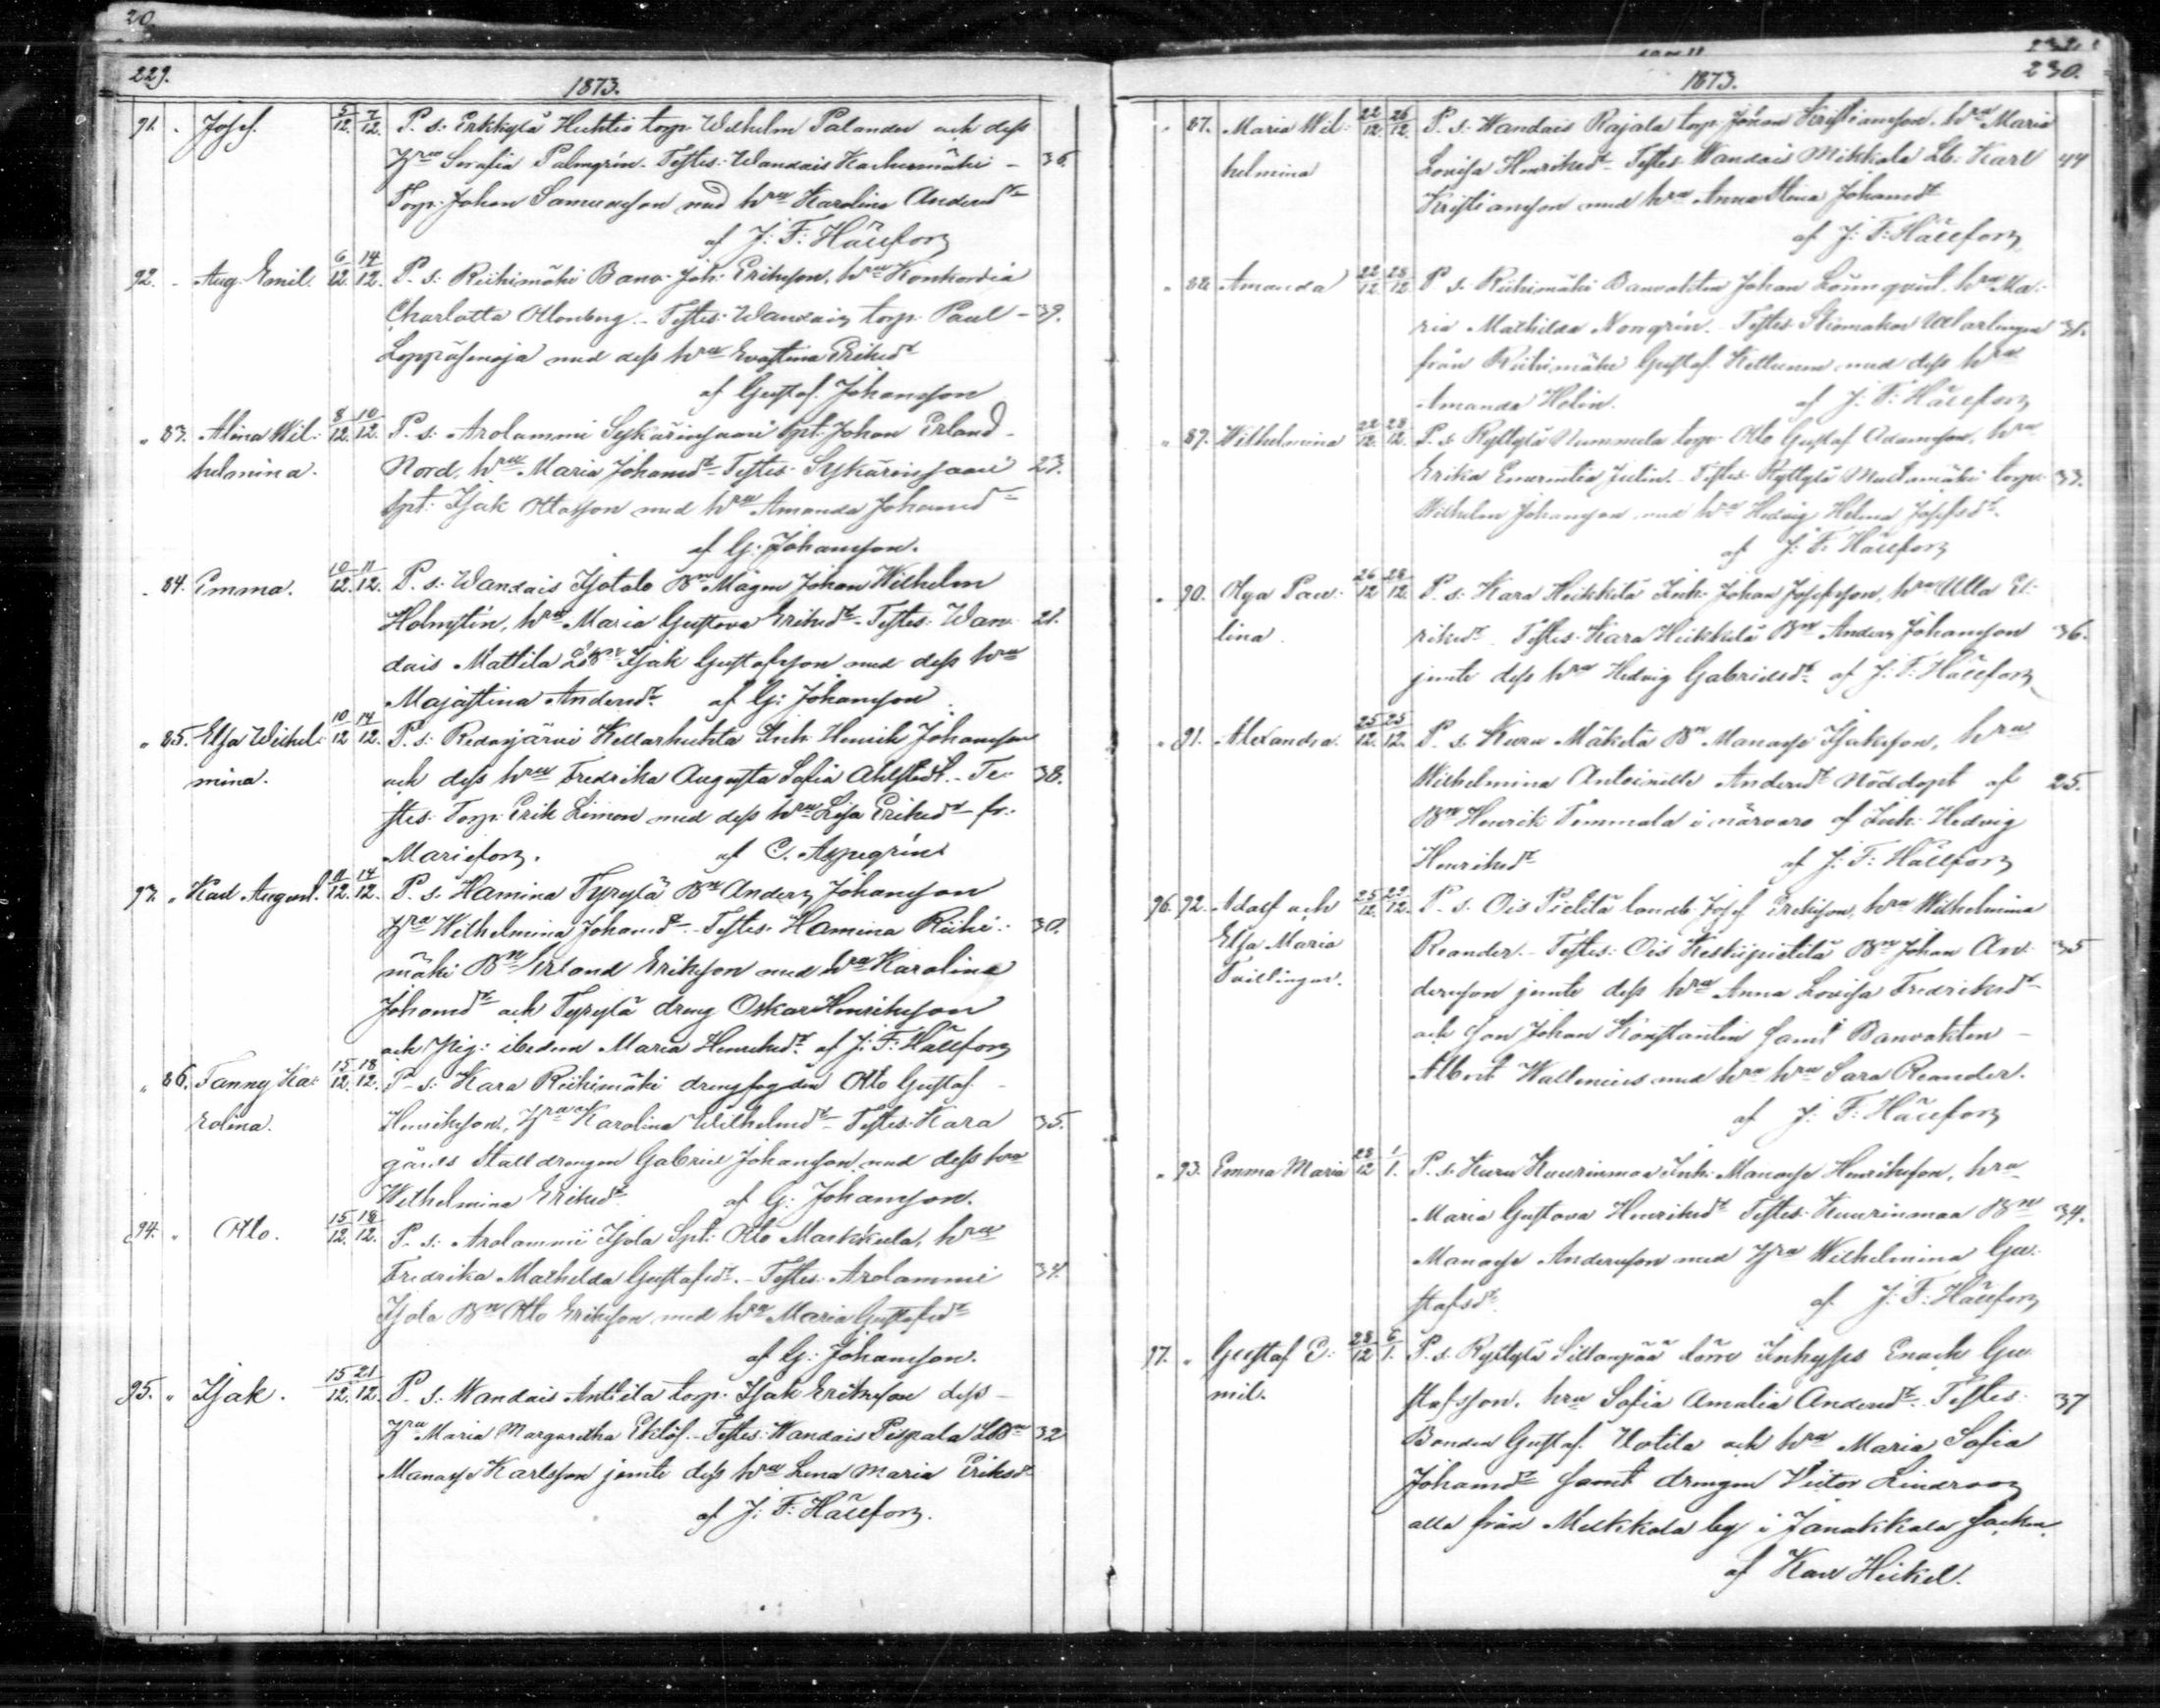 20.
229.
1873.
91. Josef. 5/12. 7/12. P. s: Erkkylä Huhtis torp. Wilhelm Palander och dess
Hru Serafia Palmgrén. Testes: Wandais 36.
Torp. Johan Samuelsson med hru Karolina Andersdr
af J: F: Hällfors
92. Aug. Emil. 6/12. 14/12. P. s: Riihimäki Banv. Joh: Eriksson, hru Konkordia
Charlotta Ottenberg. Testes: Wandais torp. Paul 39.
Leppäsenoja med dess hru Evastina Eriksdr
af Gustaf Johansson
" 83. Alina Wil: 8/12. 10/12. P. s: Arolammi Sykärinsaari Spt: Johan Erland
helmina. Nord, hru Maria Johansdr Testes Sykärinsaari 27.
Spt: Isak Ottosson med hru Amanda Johansdr
af G: Johansson.
" 84. Emma. 10/12. 11/12. P. s: Wandais Isotalo Bn Mågen Johan Wilhelm
Holmstén, hru Maria Gustava Eriksdr Testes: Wan 21.
dais Mattila Isak Gustafsson med dess hru
Majastina Andersdr. af G: Johansson
" 85. Elsa Wilhel: 10/12 14/12. P. s: Kellarhuhta Inh: Henrik Johansson
mina. och dess hru Fredrika Augusta Sofia Ahlstedt. Te: 38.
stes. Torp. Erik Limon med dess hru Lisa Eriksdr fr.
Mariefors. af C. Aspegrén.
93. " Karl August. 11/12. 14/12. P. s. Hamina Tyrylä Bn Anders Johansson
Hru Wilhelmina Johansdr Testes Hamina Riihi: 30.
mäki Bn Erland Eriksson med hru Karolina
Johansdr och Tyrylä dreng Oskar Henriksson
och Pig: ibedem Maria Henriksdr. af J: F: Hällfors
" 86. Fanny Ka: 15/12. 18/12. P. s: Kara Riihimäki drengfogden Otto Gustaf
rolina. Henriksson, Hru Karolina Wilhelmsdr Testes: Kara 35.
gårds Stalldrengen Gabriel Johansson med dess hru
Wilhelmina Eriksdr. af G: Johansson.
94. " Otto. 15/12. 18/12. P. s: Arolammi Isola Spt: Otto Markkula, hru
Fredrika Mathilda Gustafsdr. Testes: Arolammi 34.
Isola Bn Otto Eriksson med hru Maria Gustafsdr
af G: Johansson.
95. " Isak. 15/12. 21/12. P. s: Wandais Anttila torp. Isak Eriksson dess
Hru Maria Margaretha Eklöf. Testes: Wandais Pispala LBn 32
Manasse Karlsson jemte dess hru Lena Maria Eriksdr
af J: F: Hällfors.
230.
1873.
" 87. Maria Wil: 22/12. 26/12. P. s: Wandais Rajala torp. Johan Kristiansson. hru Maria
helmina Lovisa Henriksdr Testes Wandais Mikkola Lb: Karl 44
Kristiansson med hru Anna Stina Johansdr
af J: F: Hällfors
" 88. Amanda 22/12. 28/12. P. s. Riihimäki Banvakten Johan Lönnqvist, hru Ma:
ria Mathilda Nongrén. Testes 31.
från Riihimäki Gustaf med dess hru
Amanda Holin. af J: F: Hällfors
" 89. Wilhelmina 22/12. 28/12. P. s. Ryttylä Nummela torp. Otto Gustaf Adamsson, hru
Erika Emerentia Julin. Testes. Ryttylä torp. 33.
Wilhelm Johansson med hru Hedvig Helena Josefsdr.
af J: F: Hällfors
" 90. Olga Pau: 26/12 28/12. P. s. Kara Heikkilä Inh: Johan Josefsson, hru Ulla E:
lina riksdr. Testes. Kara Heikkilä Bn Anders Johansson 36.
jemte dess hru Hedvig Gabrielsdr. af J. F. Hällfors
" 91. Alexandra. 25/12. 25/12. P. s. Kuru Mäkelä Bn Manasse Isaksson, hru
Wilhelmina Antoinette Andersdr Nöddöpt af 25.
Bn Henrik Temmala i närvaro af Inh: Hedvig
Henriksdr af J: F: Hällfors
96. 92. Adolf och 25/12. 29/12. P. s. Ois Pietilä landb. Josef Eriksson, hru Wilhelmina
Elsa Maria Reander. Testes: Ois Keskipietilä Bn Johan An: 35
Tvillingar. dersson jemte dess hru Anna Lovisa Fredriksdr
och son Johan Konstantin samt Banvakten
Albert Wallenius med hru hru Sara Reander.
af J: F: Hällfors
" 93. Emma Maria 28/12 1/1. P. s. Kuru Kuurinmaa Inh: Manasse Henriksson, hru
Maria Gustava Henriksdr Testes: Kuurinmaa Bn 34.
Manasse Andersson med Hru Wilhelmina Gu:
stafsdr. af J: F: Hällfors
97. " Gustaf E: 28/12 6/1. P. s. Ryttylä Sillanpää Inhyses Enach Gu:
mil. stafsson. hru Sofia Amalia Andersdr. Testes: 37
Bonden Gustaf Uotila och hru Maria Sofia
Johansdr samt drengen Viktor Lindroos
alla från Melkkola by i Janakkala socken.
af Karl Heikel.